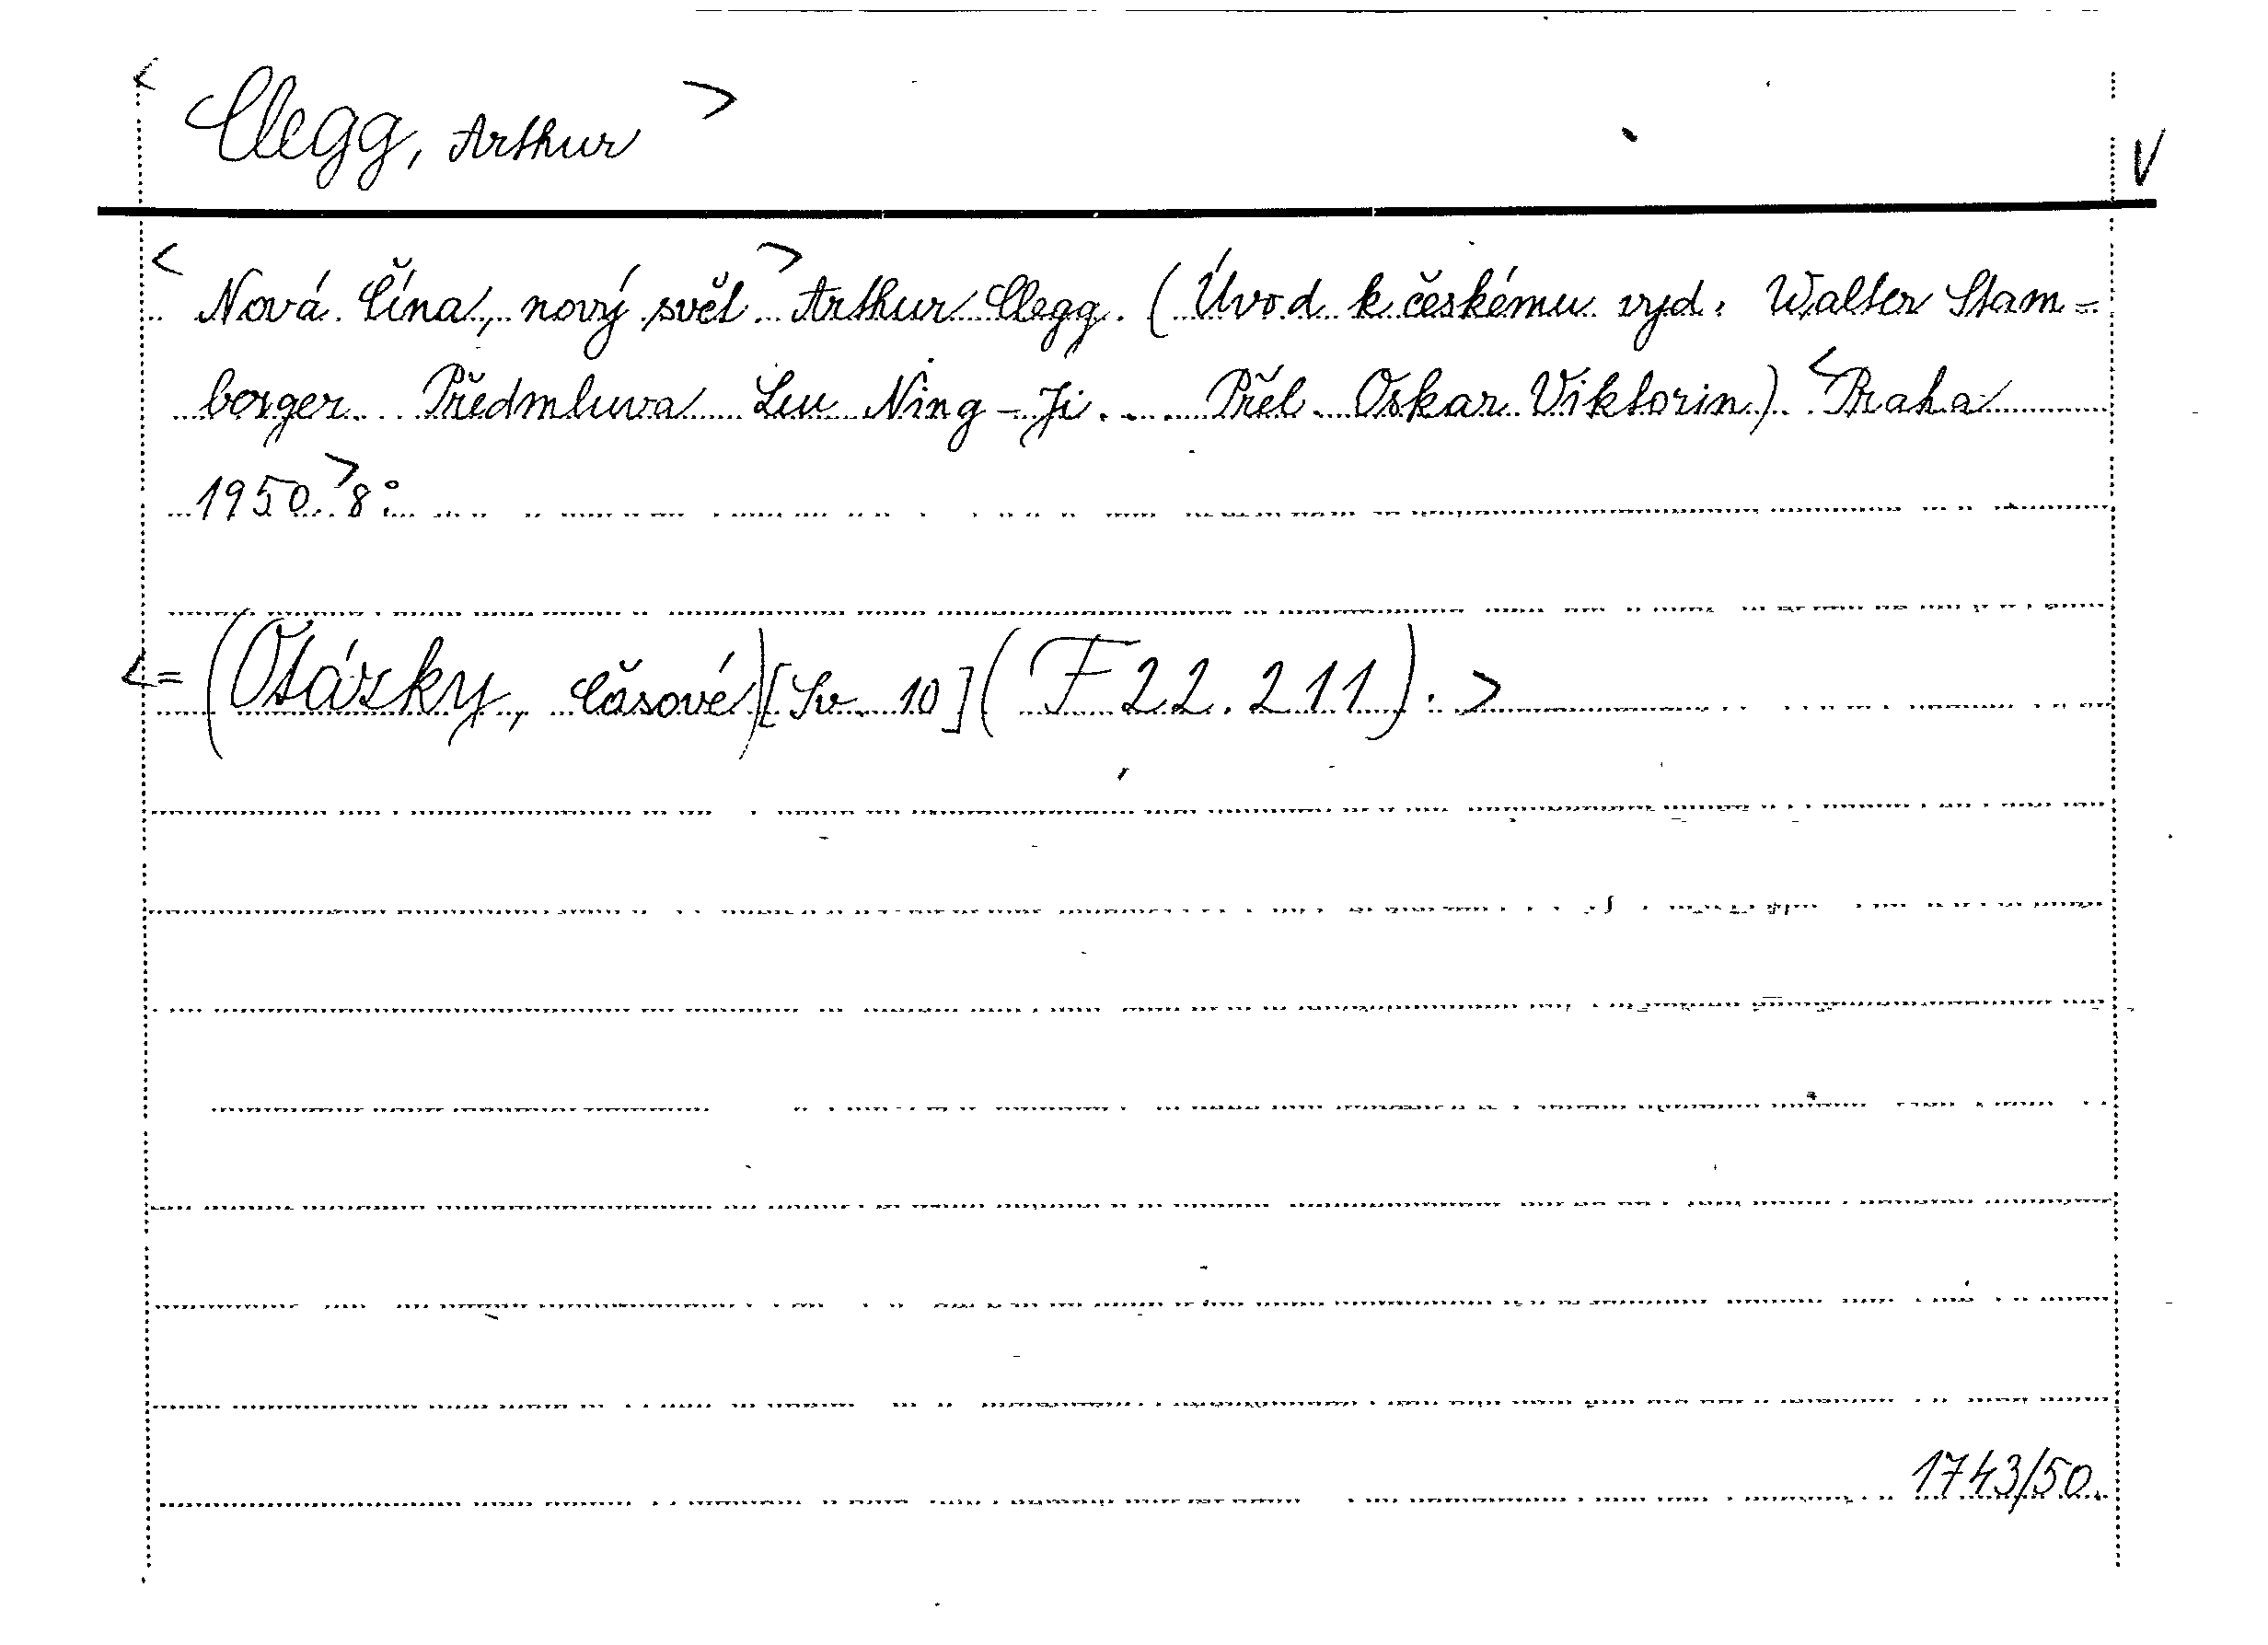 < Clegg, Arthur > V
< Nová Čína, nový svět > Arthur Clegg. (Úvod k českému vyd. Walter Stam=
berger. Předmluva Leu Ning-Ji. . . Přel. Oskar Viktorin). < Praha
1950. > 8°.
< = (Otázky, časové) [Sv. 10] (F 22.211). >
1743/50.